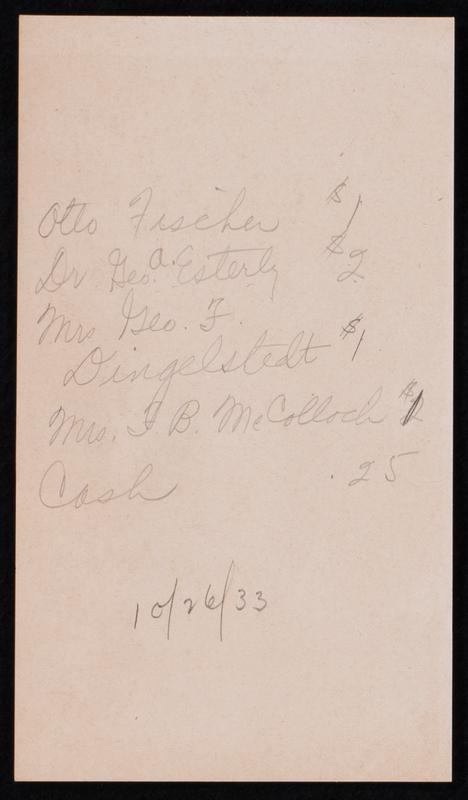 Otto Fischer $1
Dr Geo. a. Esterly $2
Mrs Geo. F.
Dingelstedt $1
Mrs. F. B. McColloch $1
Cash .25
10/26/33